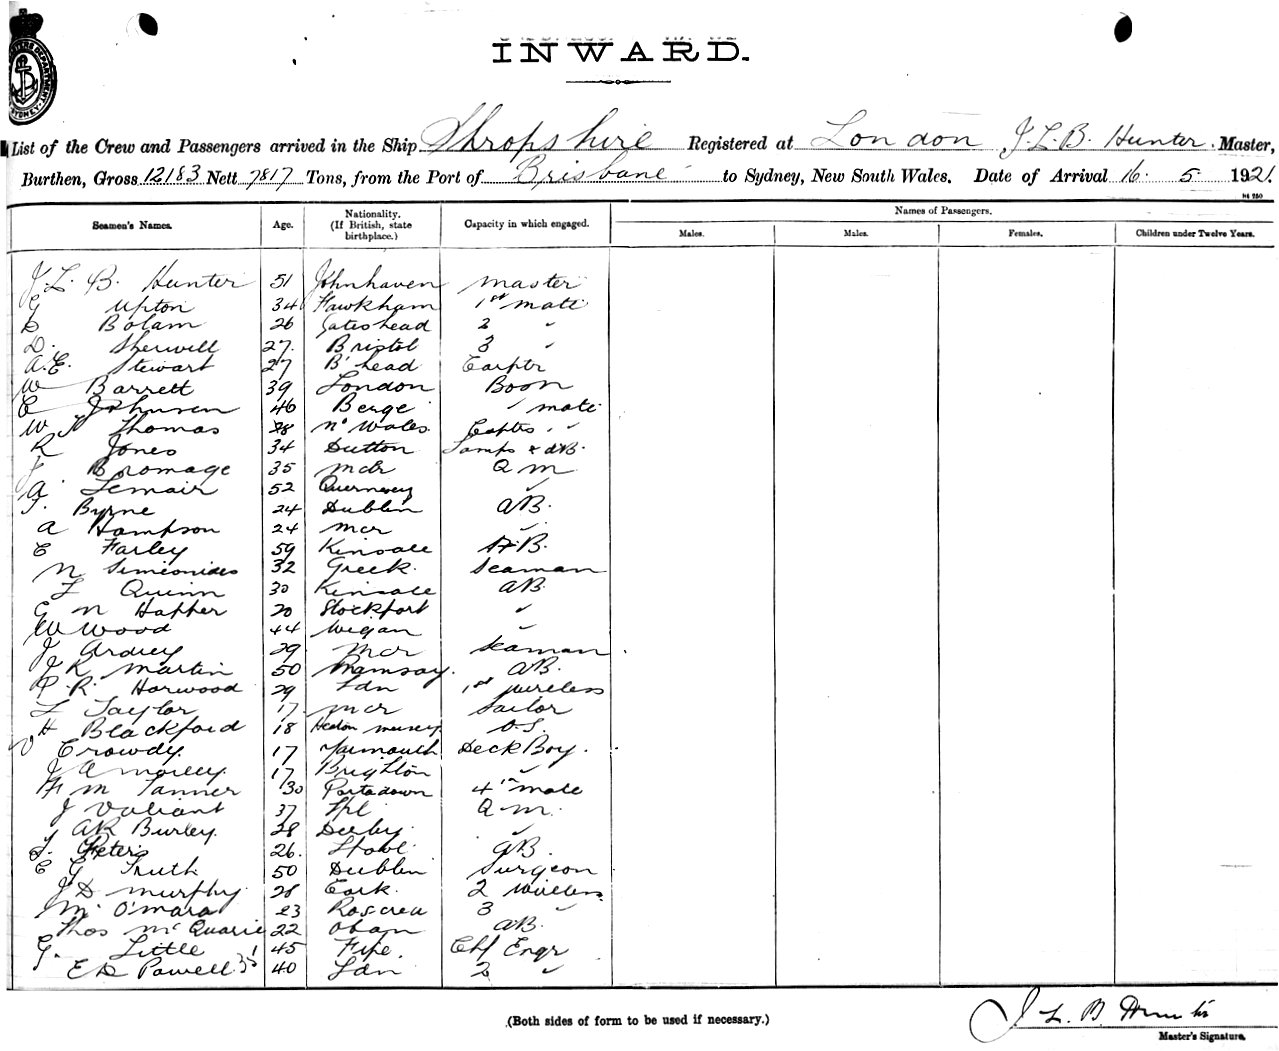 INWARD.
List of the Crew and Passengers arrived in the Ship Shropshire Registered at London J. L. B. Hunter. Master,
Burthen, Gross 12183 Nett 7817 Tons, from the Port of Brisbane to Sydney, New South Wales. Date of Arrival 16. 5 1921.
Seamen's Names. Age. Nationality. (If British, state birthplace.) Capacity in which engaged. Names of Passengers.
Males. Males. Females. Children under Twelve Years.
J. L. B. Hunter 51 Johnhaven Master
G Upton 34 Fawkham 1st mate
Bolam 26 Gateshead 2 "
D. Sherwill 27. Bristol 3 "
A. E. Stewart 27 B'head Carptr
W Barrett 39 London Bosn
C Johnsen 46 Berge " mate
W Thomas 28 No Wales. " "
R Jones 34 Dutton Lamps & AB.
J Bromage 35 Mcr Q M
A. Lemair 52 Guernsey "
T. Byrne 24 Dublin AB.
A Hampson 24 Mcr "
C Farley 59 Kinsale A.B.
N Simeonides 32 Greek Seaman
Quinn 30 Kinsale AB
G N Hopher 20 Stockport "
W Wood 44 Wigan "
J Ardrey 29 Mcr Seaman
J R Martin 50 Ramsay. AB.
P. R. Horwood 29 Ldn 1st Wireless
Taylor 17 Mcr Sailor
H Blackford 18 Heaton Mersey O.S.
V Crowdy 17 Yarmouth Deck Boy.
J A Morley 17 Brighton "
F M Tanner 30 Portadown 4th mate
J Valiant 37 Lpl Q M.
AR Burley. 28 Derby "
Peters 26. AB.
C G Truth 50 Dublin Surgeon
J D Murphy 28 Cork. 2 Wireless
M. O'Mara 23 Roscrea 3 "
Thos McQuarie 22 Oban AB.
G. Little 45 Fife. Chf Engr
E D Powell 40 Ldn 2 "
(Both sides of form to be used if necessary.)
J L. B. Hunter
Master's Signature.